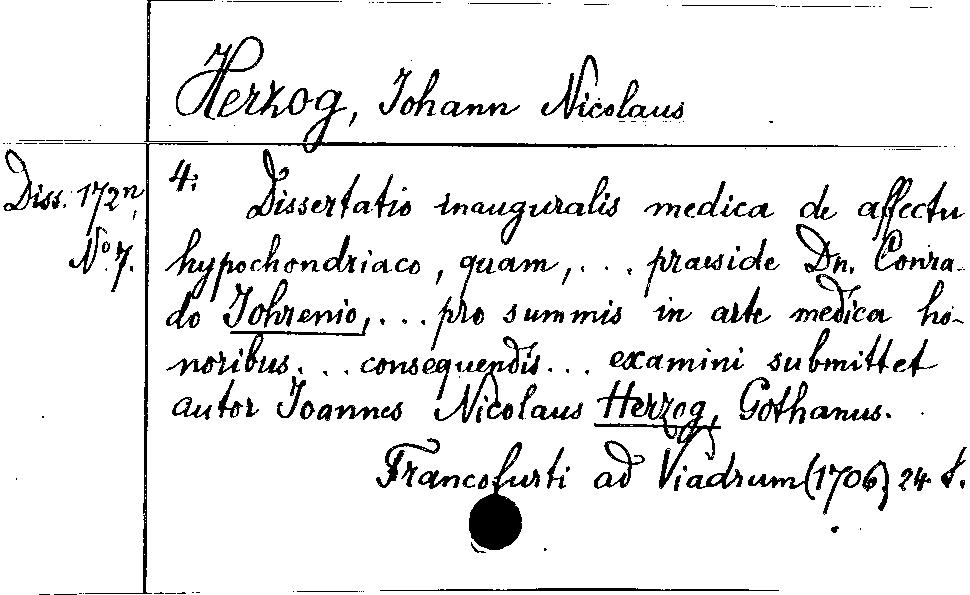 Herzog, Johann Nicolaus
Diss. 172n,
No 7.
4: Dissertatio inauguralis medica de affectu
hypochondriaco, quam, ... praeside Dn. Conra-
do Johrenio, ... pro summis in arte medica ho-
noribus ... consequendis ... examini submittet
autor Joannes Nicolaus Herzog, Gothanus.
Francofurti ad Viadrum (1706) 24 S.